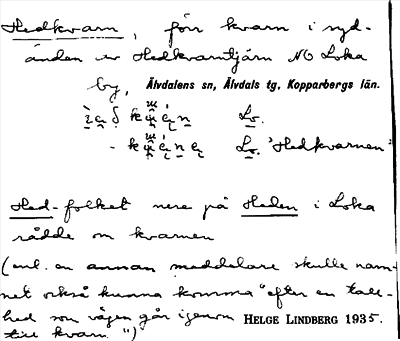 Hedkvarn, förr kvarn i syd-
änden av Hedkvarntjärn NO Loka
by, Älvdalens sn, Älvdals tg, Kopparbergs län.
Lv.
Lv. "Hedkvarnen"
Hed-folket nere på Heden i Loka
rådde om kvarnen
(enl. en annan meddelare skulle nam-
net också kunna komma "efter en tall-
hed som vägen går igenom HELGE LINDBERG 1935.
till kvarn.")